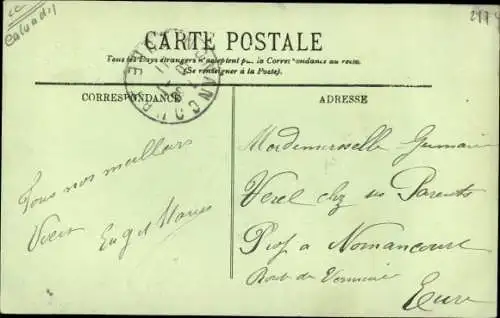 Calvados
2174
CARTE POSTALE
Tous les Pays étrangers n'acceptent pas la Correspondance au recto.
(Se renseigner à la Poste).
CORRESPONDANCE
Tous nos meilleurs
Voeux
Eug et Marie
ADRESSE
Mademoiselle Germaine
Verel chez ses Parents
à Nonancourt
Eure